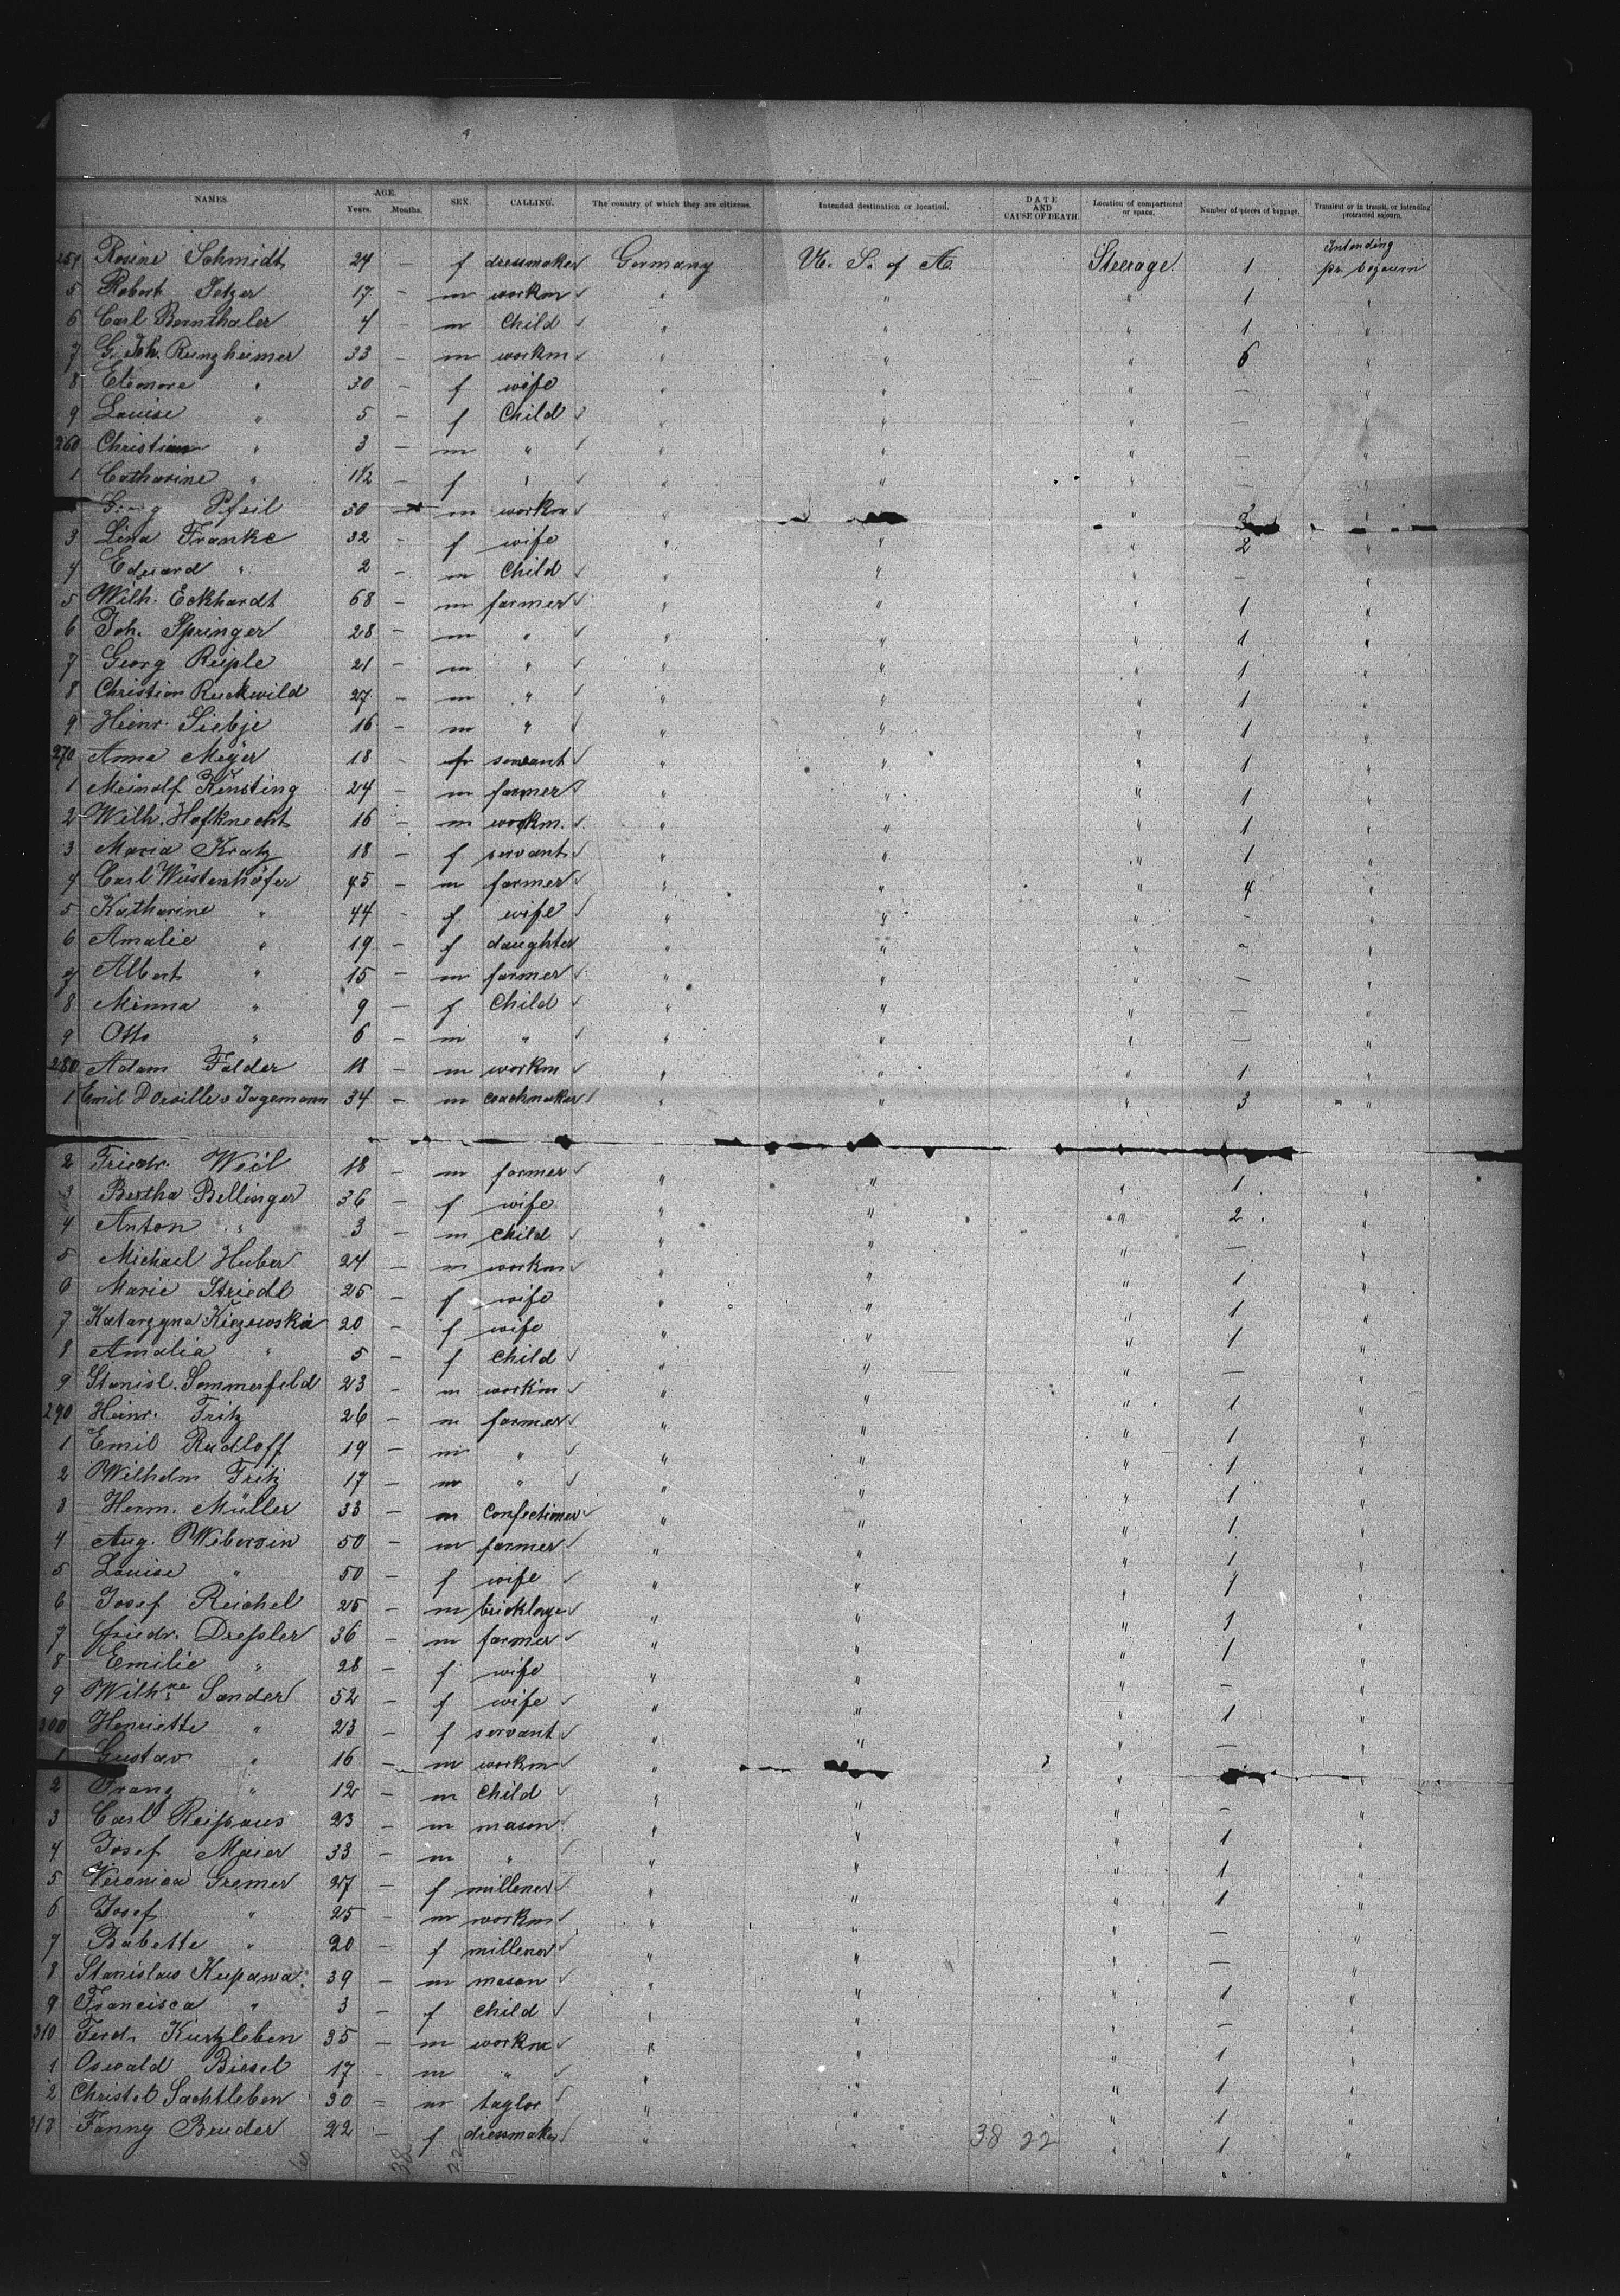 NAMES. AGE. Years. Months. SEX. CALLING. The country of which they are citizens. Intended destination or location. DATE AND CAUSE OF DEATH. Location of compartment or space. Number of pieces of baggage. Transient or in transit, or intending protracted sojourn.
Rosine Schmidt 24 – f dressmaker Germany U. S. of A. Steerage 1 Intending pr. sojourn
5 Robert 17 – m workm " " " 1 "
6 Carl Bernthaler 4 – m Child " " " 1 "
7 G. Joh. Runzheimer 33 – m workm " " " 6 "
8 Eleonore " 30 – f wife " " " – "
9 Louise " 5 – f Child " " " – "
260 Christian " 3 – m " " " " – "
1 Catharine " 1 1/2 – f " " " " – "
Georg Pfeil 30 – m workm " " " 3 "
3 Lina Franke 32 – f wife " " " 2 "
4 Eduard " 2 – m Child " " " – "
5 Wilh. Eckhardt 68 – m farmer " " " 1 "
6 Joh. Springer 28 – m " " " " 1 "
7 Georg Reiple 21 – m " " " " 1 "
8 Christian Ruckwild 27 – m " " " " 1 "
9 Heinr. Siebje 16 – m " " " " 1 "
270 Anna Meyer 18 – f servant " " " 1 "
1 Meinolf Kensting 24 – m farmer " " " 1 "
2 Wilh. Hofknecht 16 – m workm. " " " 1 "
3 Maria Kratz 18 – f servant " " " 1 "
4 Carl Wüstenhöfer 45 – m farmer " " " 4 "
5 Katharine " 44 – f wife " " " – "
6 Amalie " 19 – f daughter " " " – "
7 Albert " 15 – m farmer " " " – "
8 Minna " 9 – f Child " " " – "
9 Otto " 6 – m " " " " – "
280 Adam Falder 18 – m workm " " " 1 "
1 Emil Jagemann 34 – m coachmaker " " " 3 "
2 Friedr. Weil 18 – m farmer " " " 1 "
3 Bertha Bellinger 36 – f wife " " " 2 "
4 Anton " 3 – m child " " " – "
5 Michael Huber 24 – m workm " " " 1 "
6 Marie Striedl 25 – f wife " " " 1 "
7 Katarzyna Kiczewska 20 – f wife " " " 1 "
8 Amalia " 5 – f child " " " – "
9 Stanisl. Sommerfeld 23 – m workm " " " 1 "
290 Heinr. Fritz 26 – m farmer " " " 1 "
1 Emil Rudloff 19 – m " " " " 1 "
2 Wilhelm Fritz 17 – m " " " " 1 "
3 Herm. Müller 33 – m Confectioner " " " 1 "
4 Aug. Wibersin 50 – m farmer " " " 1 "
5 Louise " 50 – f wife " " " 1 "
6 Josef Reichel 25 – m bricklayer " " " 1 "
7 Friedr. Dreßler 36 – m farmer " " " 1 "
8 Emilie " 28 – f wife " " " – "
9 Wilhne Sander 52 – f wife " " " 1 "
300 Henriette " 23 – f servant " " " – "
1 Gustav " 16 – m workm " " " "
2 Franz " 12 – m child " " " – "
3 Carl Reißaus 23 – m mason " " " 1 "
4 Josef Maier 33 – m " " " " 1 "
5 Veronica Gremer 27 – f millener " " " 1 "
6 Josef " 25 – m workm " " " – "
7 Babette " 20 – f millener " " " – "
8 Stanislaus Kupawa 39 – m mason " " " 1 "
9 Francisca " 3 – f child " " " – "
310 Ferd. Kurzleben 35 – m workm " " " 1 "
1 Oswald Biesel 17 – m " " " " 1 "
2 Christel Sachtleben 30 – m taylor " " " 1 "
313 Fanny Bruder 22 – f dressmaker " " " 1 "
38 22
60 38 22